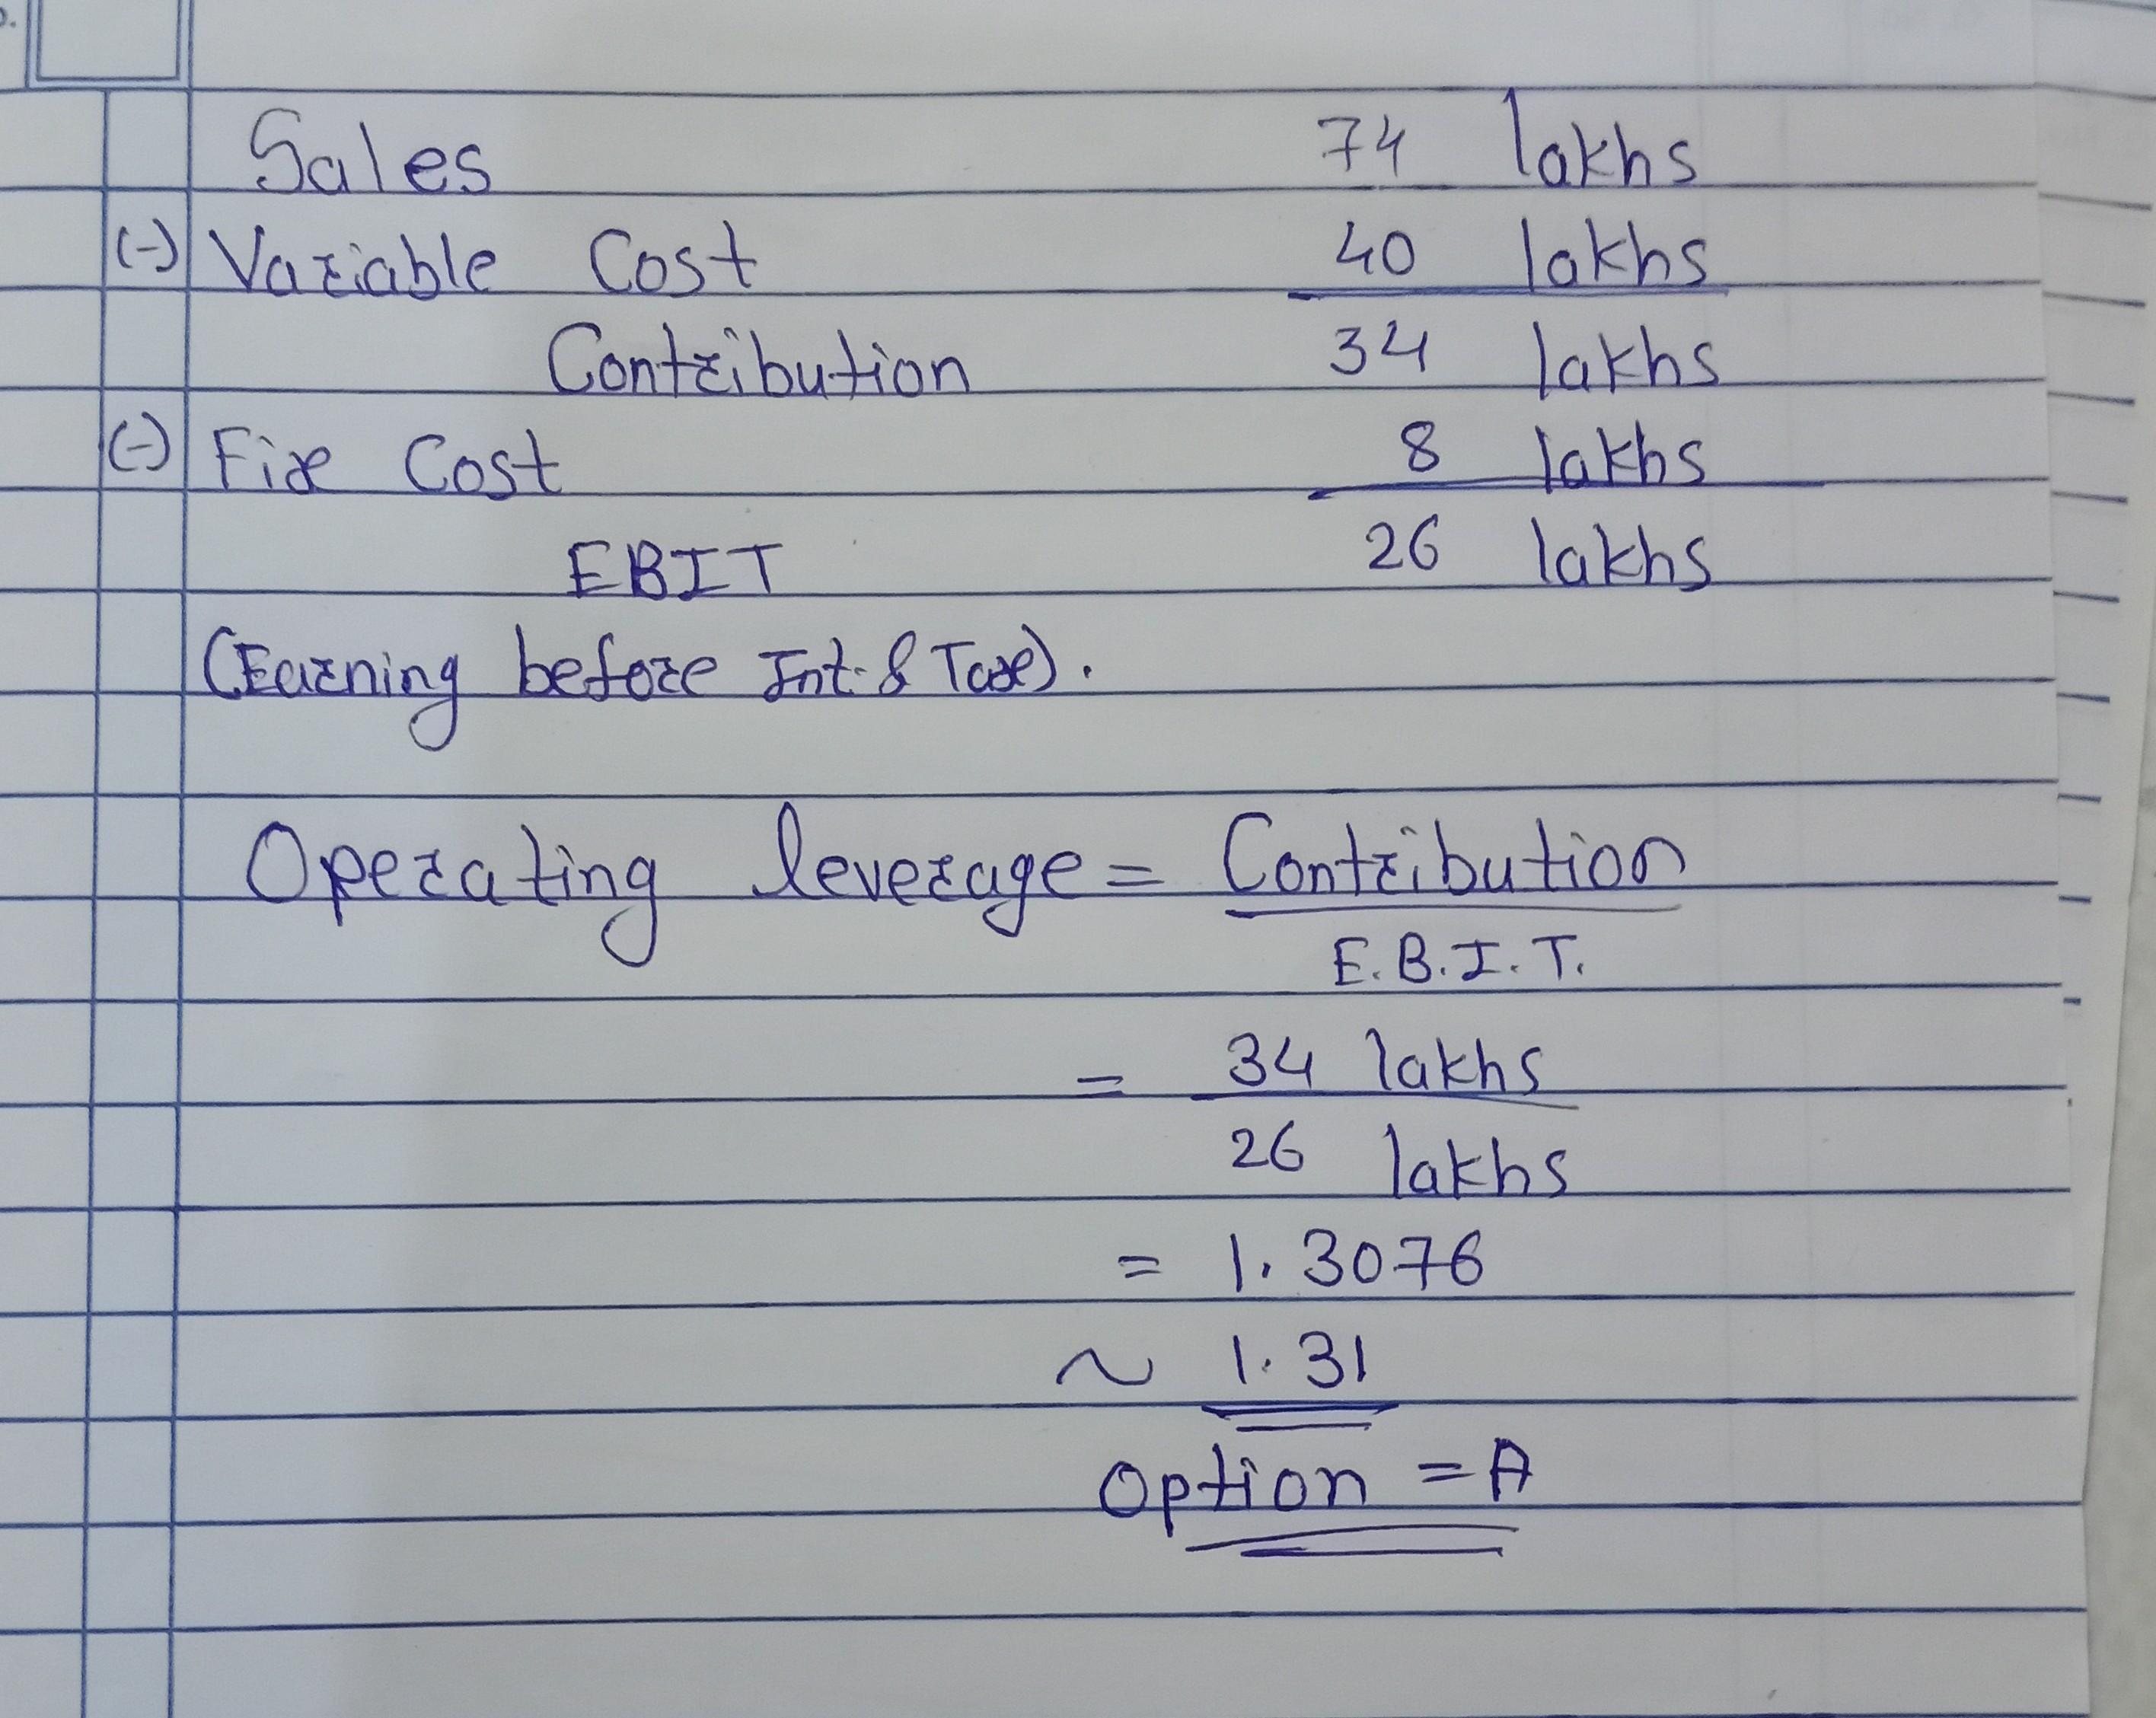 Sales 74 lakhs
(-) Variable Cost 40 lakhs
Contribution 34 lakhs
(-) Fix Cost 8 lakhs
EBIT 26 lakhs
(Earning before Int. & Tax).
Operating leverage = Contribution
E.B.I.T.
= 34 lakhs
26 lakhs
= 1.3076
~ 1.31
Option = A